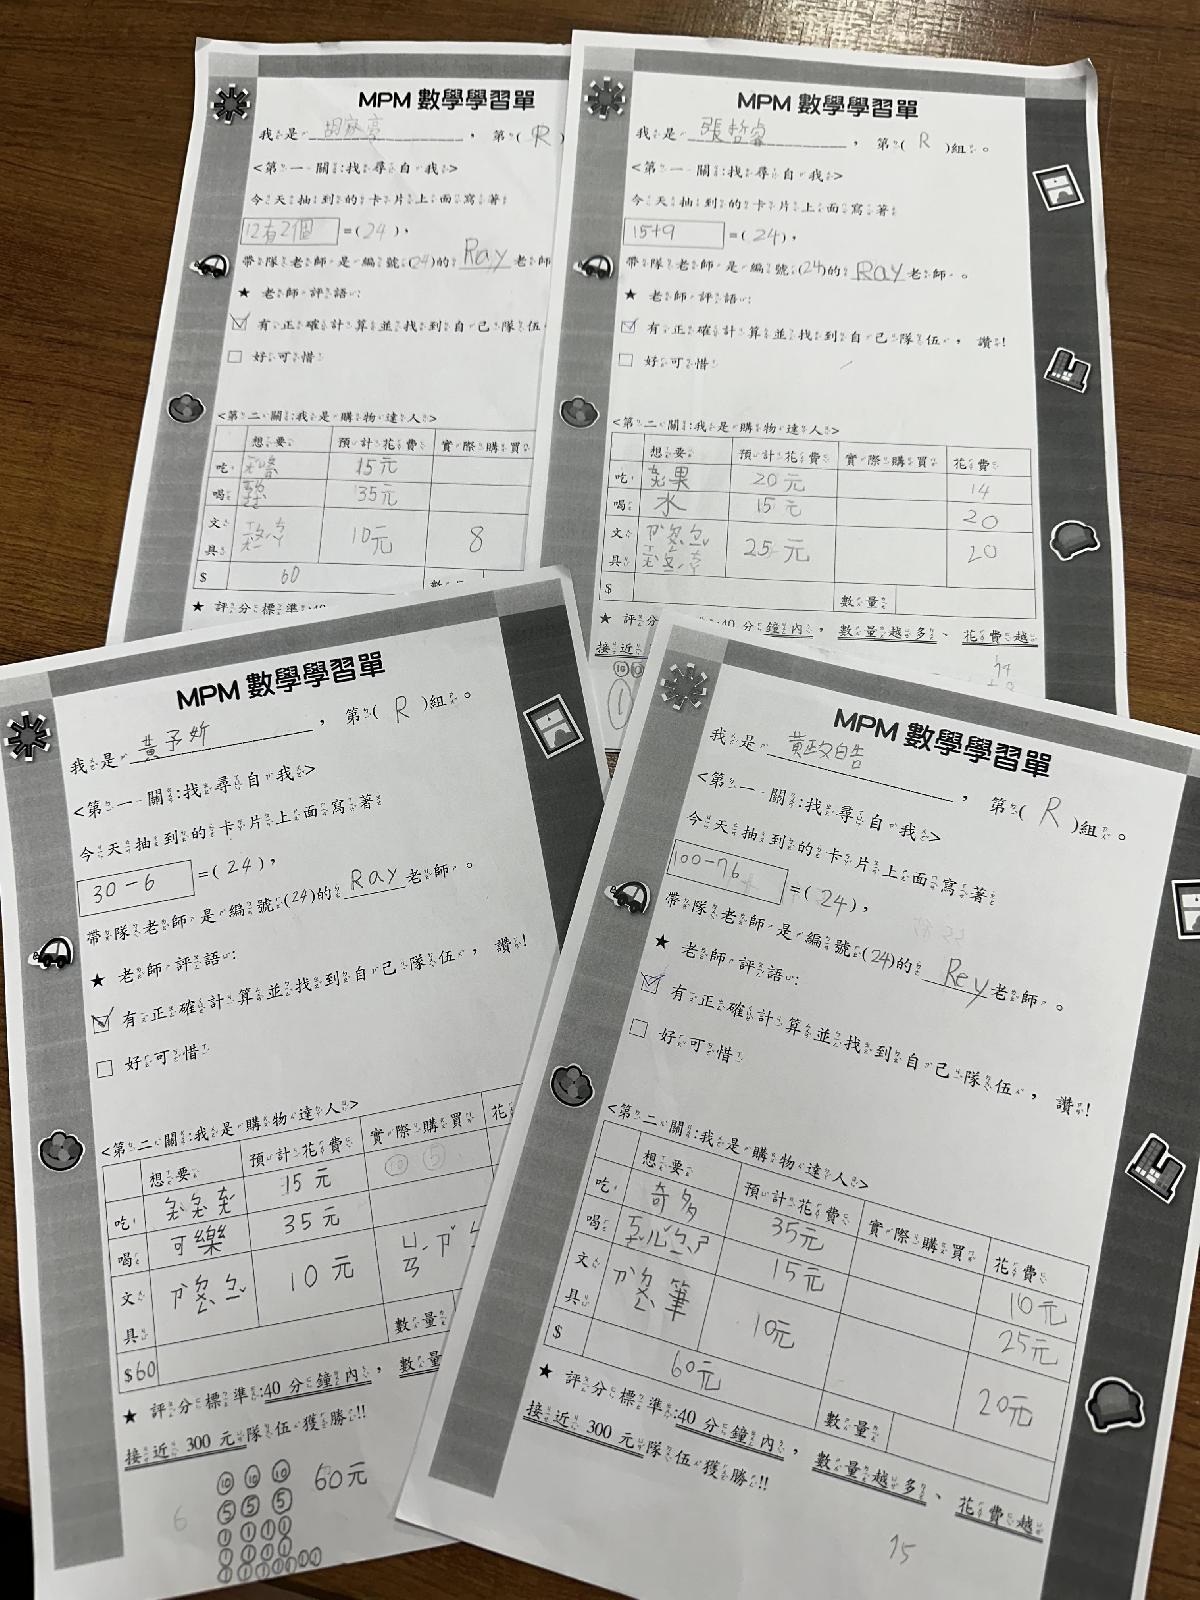 MPM 數學學習單
我是，第( R )
<第一關:找尋自我>
今天抽到的卡片上面寫著
12有2個 =(24),
帶隊老師是編號(24)的 Ray 老師
★ 老師評語:
☑ 有正確計算並找到自己隊伍
☐ 好可惜
<第二關:我是購物達人>
想要 預計花費 實際購買
吃 15元
喝 35元
文具 10元 8
$ 60
★ 評分標準:40
MPM 數學學習單
我是 張哲睿，第( R )組。
<第一關:找尋自我>
今天抽到的卡片上面寫著
15+9 =(24),
帶隊老師是編號(24)的 Ray 老師。
★ 老師評語:
☑ 有正確計算並找到自己隊伍，讚!
☐ 好可惜
<第二關:我是購物達人>
想要 預計花費 實際購買 花費
吃 果 20元 14
喝 水 15元 20
文具 25元 20
$ 數量
★ 評分標準:40分鐘內，數量越多、花費越
接近
MPM 數學學習單
我是 黃予妡，第( R )組。
<第一關:找尋自我>
今天抽到的卡片上面寫著
30-6 =(24),
帶隊老師是編號(24)的 Ray 老師。
★ 老師評語:
☑ 有正確計算並找到自己隊伍，讚!
☐ 好可惜
<第二關:我是購物達人>
想要 預計花費 實際購買 花
吃 15元 ⑩ ⑤
喝 可樂 35元
文具 10元
$60 數量
★ 評分標準:40分鐘內，數量
接近 300 元隊伍獲勝!!
⑩ ⑩ ⑩ 60元
⑤ ⑤ ⑤
6
MPM 數學學習單
我是 黃政皓，第( R )組。
<第一關:找尋自我>
今天抽到的卡片上面寫著
100-76 =(24),
帶隊老師是編號(24)的 Rey 老師。
★ 老師評語:
☑ 有正確計算並找到自己隊伍，讚!
☐ 好可惜
<第二關:我是購物達人>
想要 預計花費 實際購買 花費
吃 奇多 35元 10元
喝 15元 25元
文具 筆 10元 20元
$ 60元 數量
★ 評分標準:40分鐘內，數量越多、花費越
接近 300 元隊伍獲勝!!
15